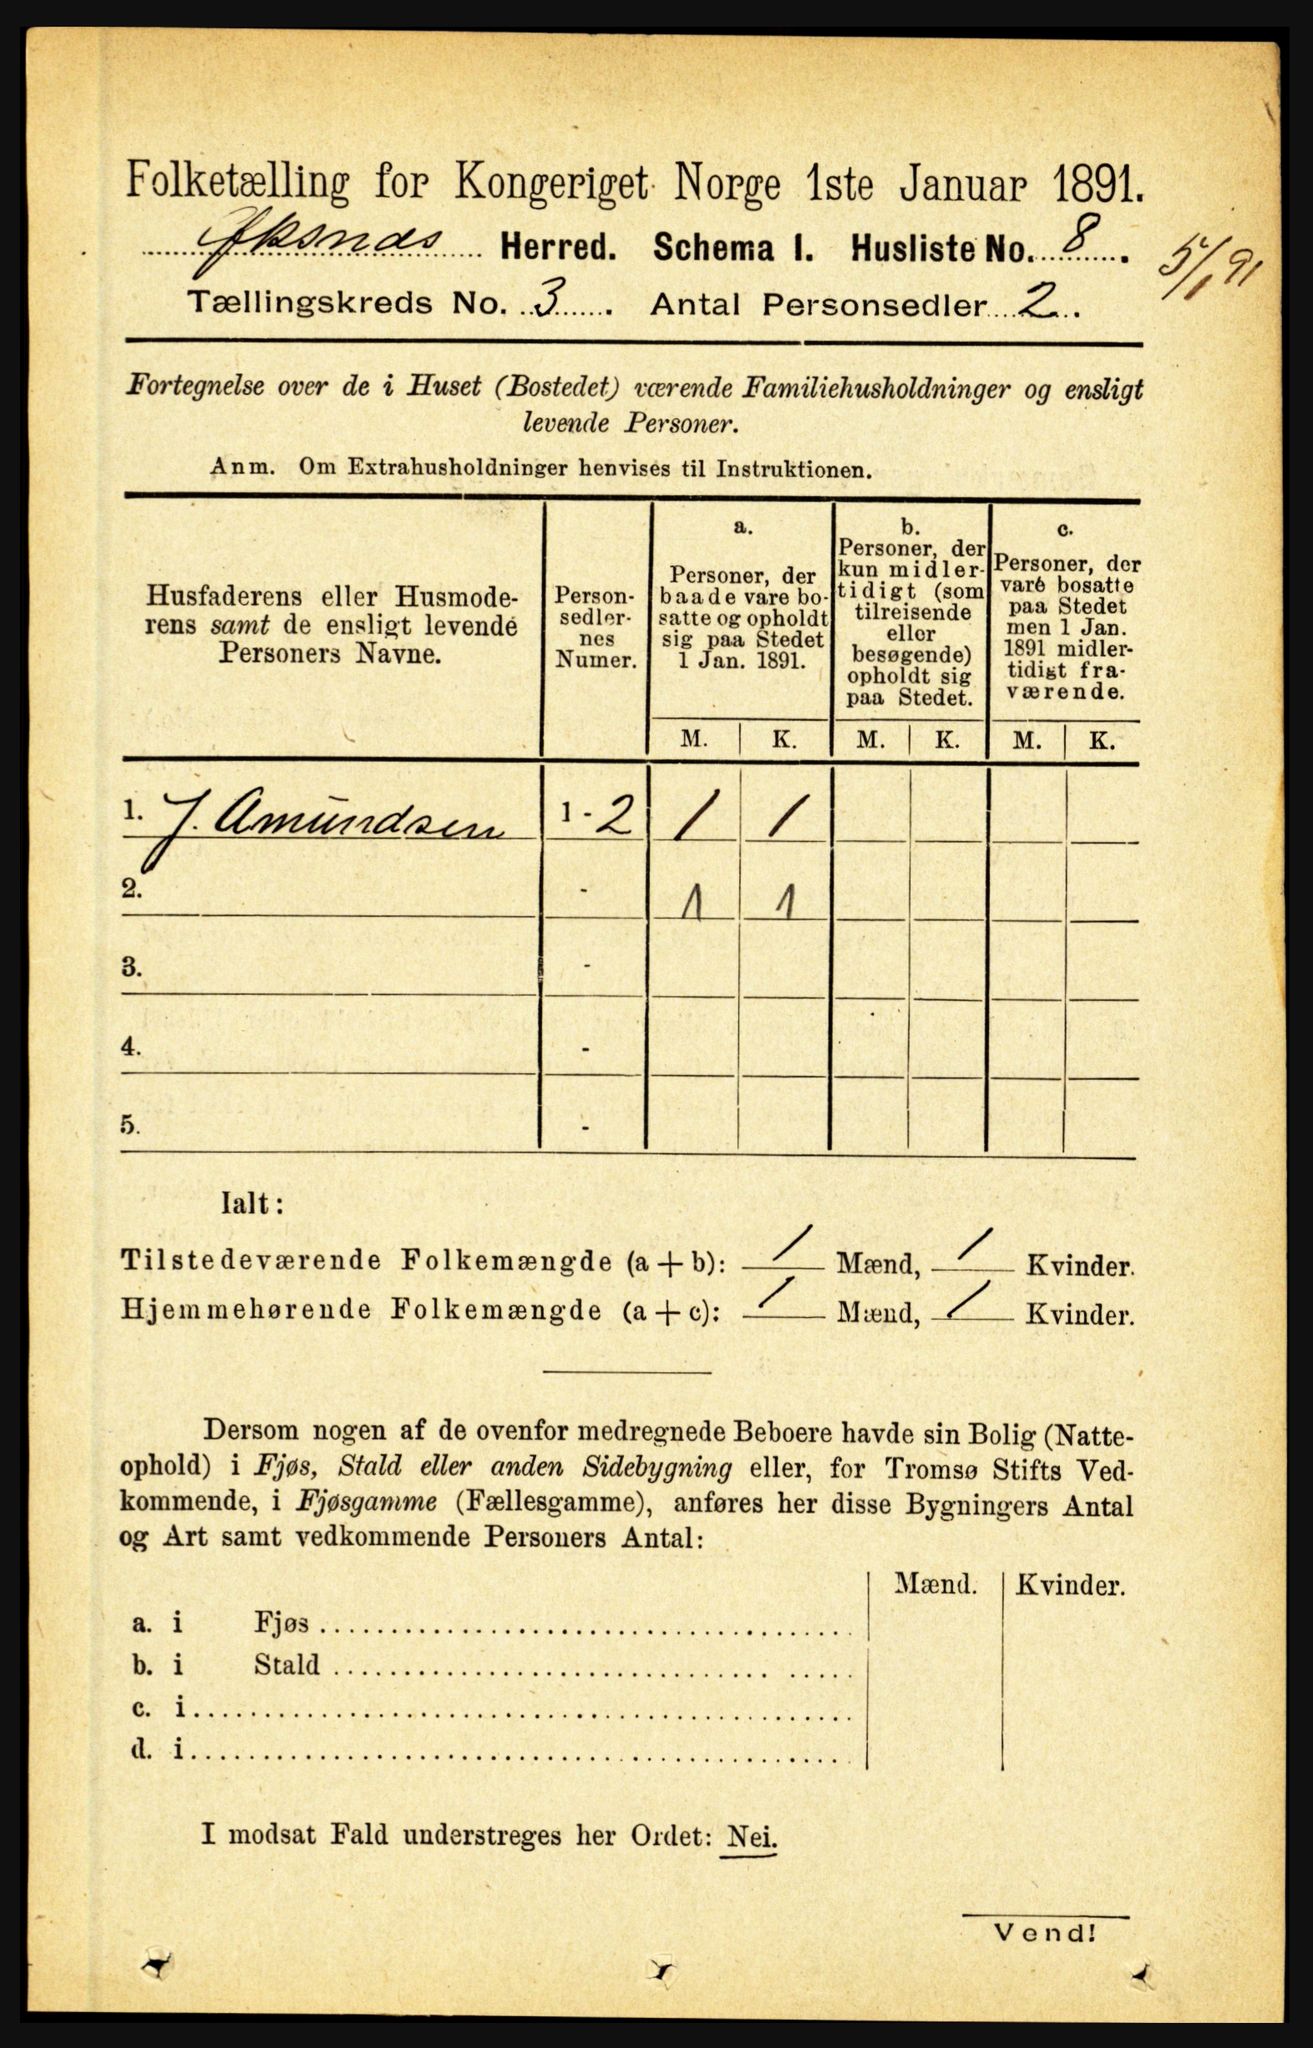 Folketælling for Kongeriget Norge 1ste Januar 1891.
Øksnæs Herred. Schema 1. Husliste No. 8.
5/1 91
Tællingskreds No. 3. Antal Personsedler 2.
Fortegnelse over de i Huset (Bostedet) værende Familiehusholdninger og ensligt
levende Personer.
Anm. Om Extrahusholdninger henvises til Instruktionen.
Husfaderens eller Husmode-
rens samt de ensligt levende
Personers Navne.
Person-
sedler-
nes
Numer.
a.
Personer, der
baade vare bo-
satte og opholdt
sig paa Stedet
1 Jan. 1891.
b.
Personer, der
kun midler-
tidigt (som
tilreisende
eller
besøgende)
opholdt sig
paa Stedet.
c.
Personer, der
vare bosatte
paa Stedet
men 1 Jan.
1891 midler-
tidigt fra-
værende.
M. K. M. K. M. K.
1. J. Amundsen 1 - 2 1 1
2. - 1 1
3. -
4. -
5. -
Ialt:
Tilstedeværende Folkemængde (a + b): 1 Mænd, 1 Kvinder.
Hjemmehørende Folkemængde (a + c): 1 Mænd, 1 Kvinder.
Dersom nogen af de ovenfor medregnede Beboere havde sin Bolig (Natte-
ophold) i Fjøs, Stald eller anden Sidebygning eller, for Tromsø Stifts Ved-
kommende, i Fjøsgamme (Fællesgamme), anføres her disse Bygningers Antal
og Art samt vedkommende Personers Antal:
Mænd. Kvinder.
a. i Fjøs
b. i Stald
c. i
d. i
I modsat Fald understreges her Ordet: Nei.
Vend!